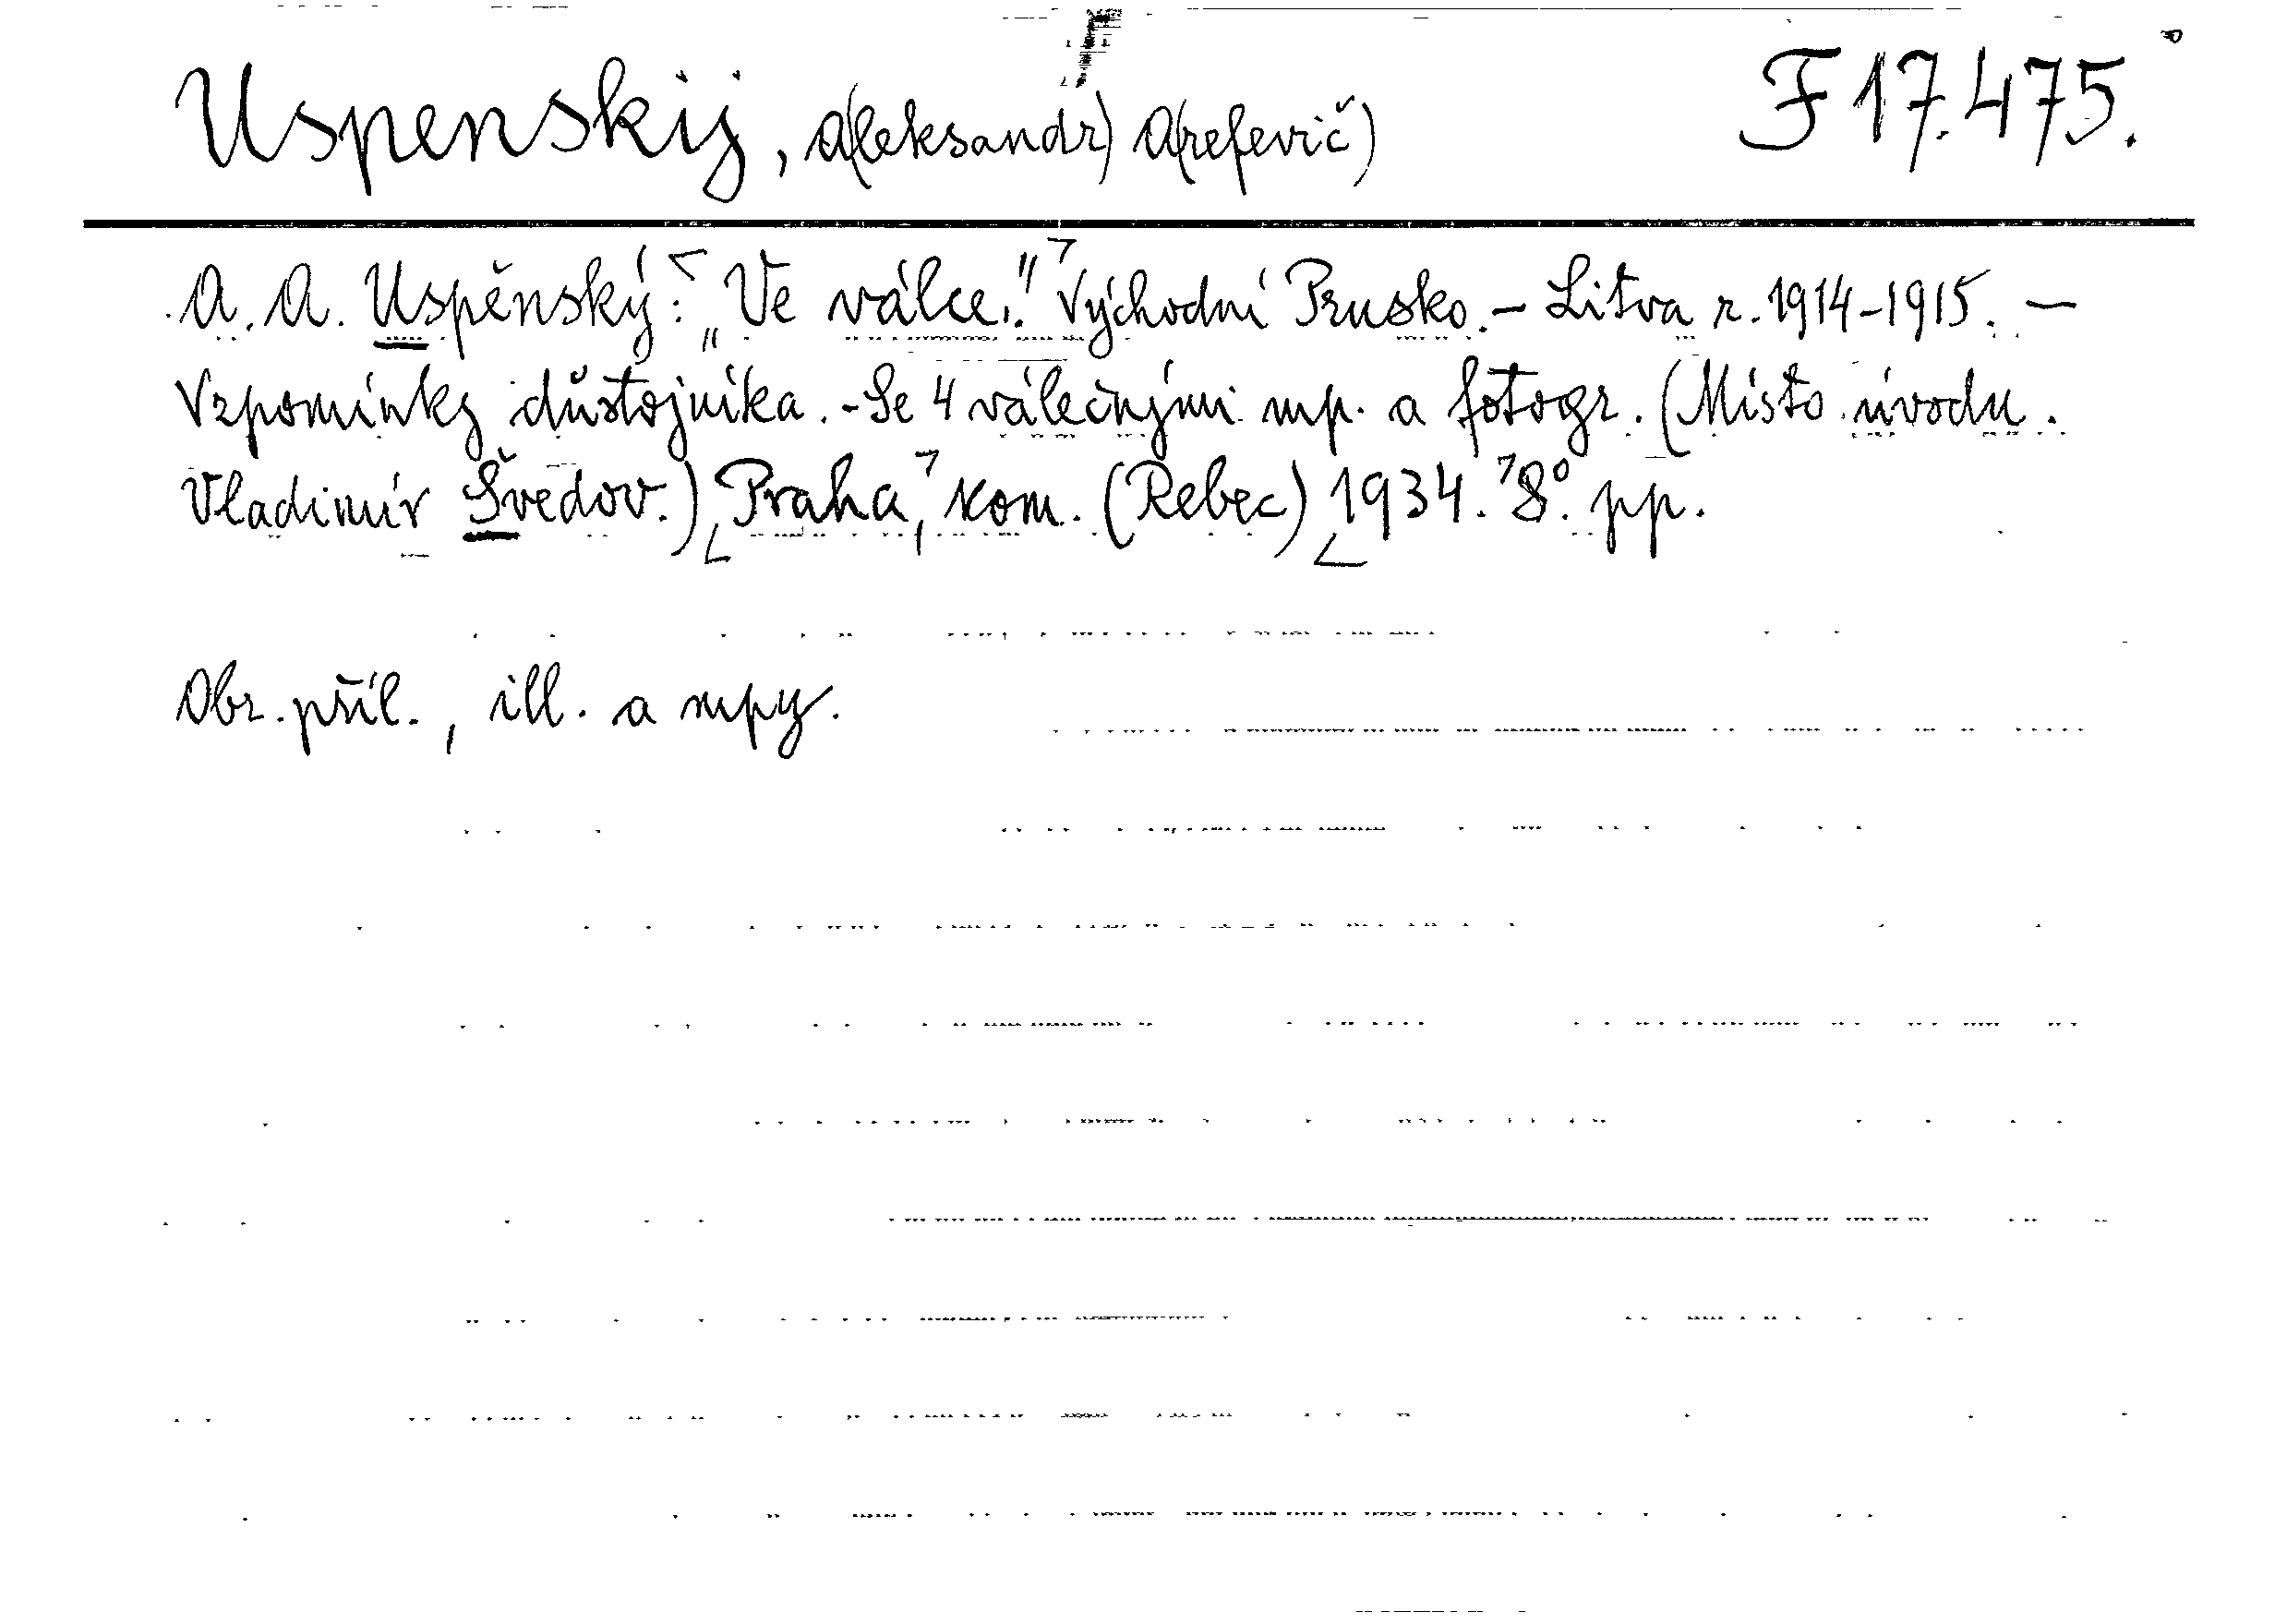 Uspenskij, A(leksandr) A(refevič) F 17.475.
A. A. Uspěnský: „Ve válce." Východní Prusko. - Litva r. 1914-1915. —
Vzpomínky důstojníka. - Se 4 válečnými mp. a fotogr. (Místo úvodu.
Vladimír Švedov.) Praha, kom. (Rebec) 1934. 8°. pp.
Obr. příl., ill. a mpy.